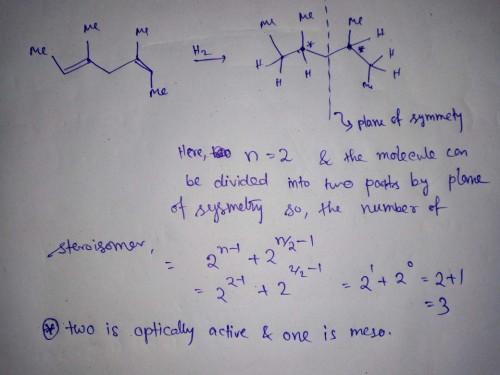 Me Me Me Me Me
H₂
* *
H H H H H
Me Me
plane of symmety
Here, n = 2 & the molecule can
be divided into two parts by plane
of sysmetry so, the number of
steroisomer,
= 2^(n-1) + 2^(n/2-1)
= 2^(2-1) + 2^(2/2-1) = 2^1 + 2^0 = 2+1
= 3
* two is optically active & one is meso.